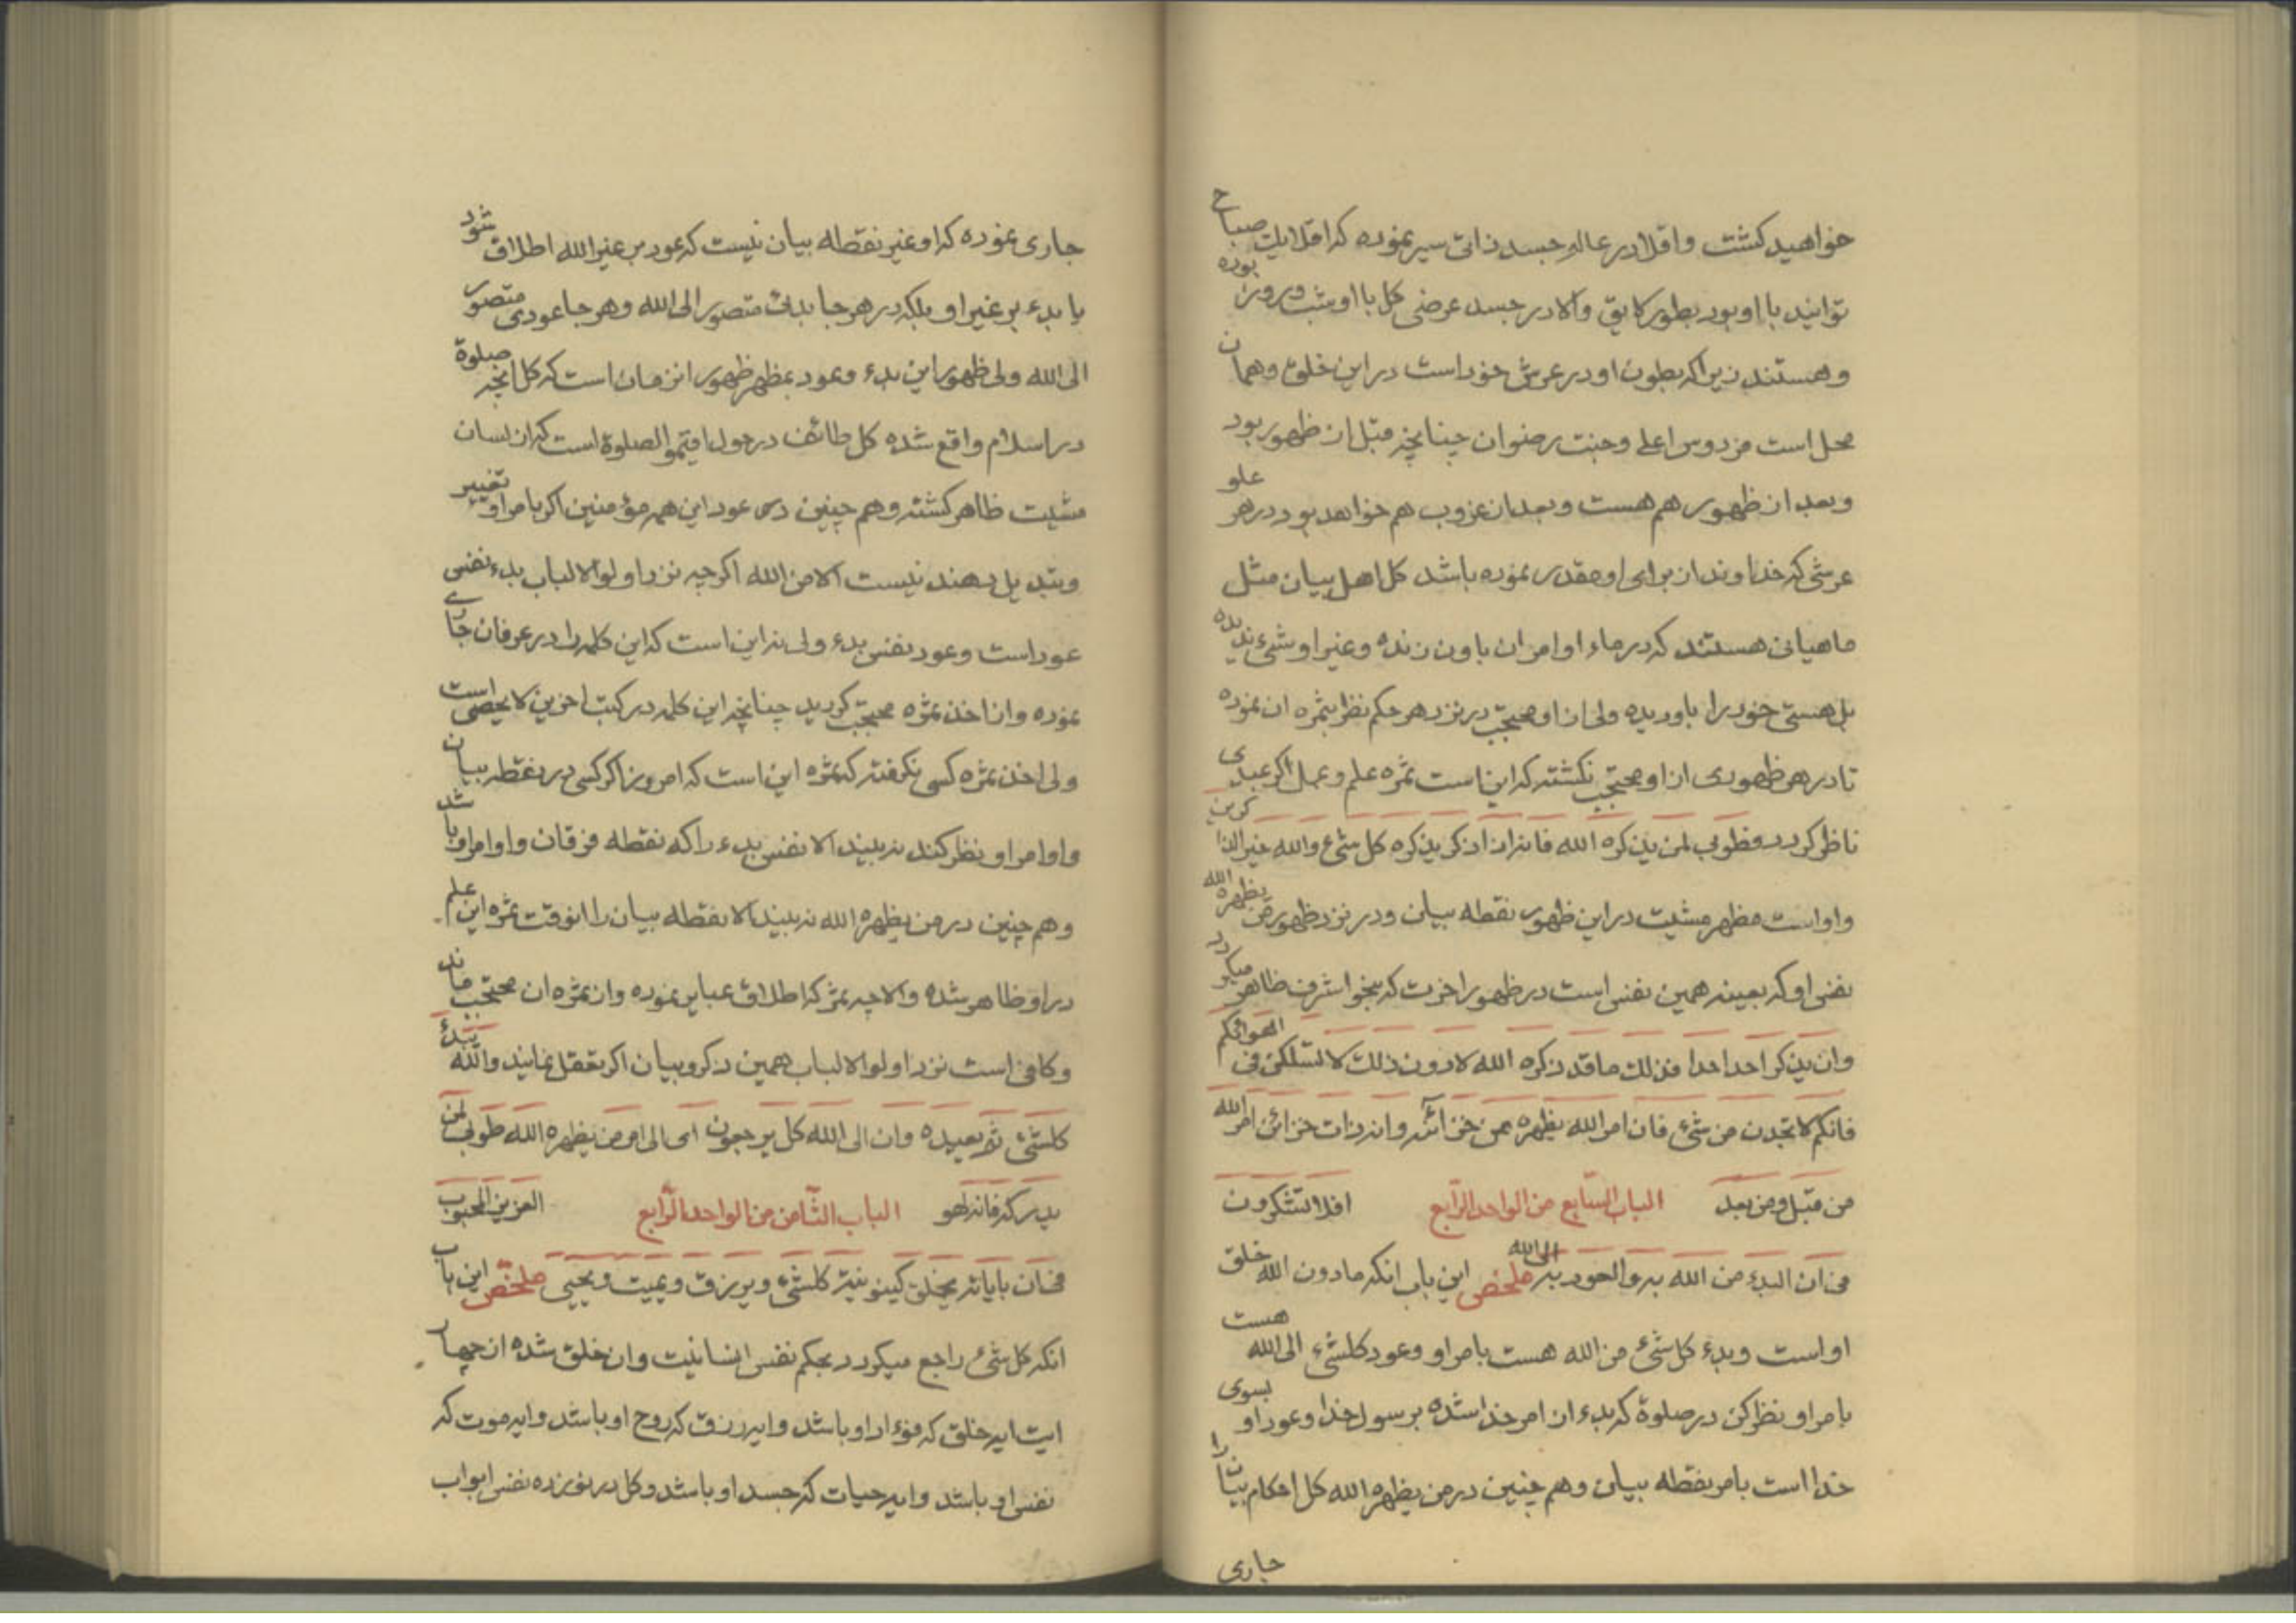 خواهید کشت و اقلا در عالم جسد ذاتی سیر نموده که اقلا یک صباح
توانید با او بود بطور لایق والا در جسد عرضی کل با او شب و روز بوده
و هستند زیرا که بطون او در عرش خود است در این خلق و همان
محل است فردوس اعلی و جنت رضوان چنانچه قبل از ظهور بود
و بعد از ظهور هم هست و بعد از غروب هم خواهد بود در هر علو
عرشی که خداوند از برای او مقدر نموده باشد کل اهل بیان مثل
ماهیانی هستند که در ماء اوامر ان باو زنده و غیر او شیء ندیده
بل هستی خود را باو دیده ولی از او محتجب در نزد هر حکم نظر بثمره ان نموده
تا در هر ظهوری از او محتجب نکشته که این است ثمره علم و عمل اکر عبدی
ناظر کردد فطوبی لمن یذکره الله فانه اذا ذکر یذکره کل شیء والله خیر الذاکرین
و او است مظهر مشیت در این ظهور نقطه بیان و در نزد ظهور من یظهره الله
نفس او که بعینه همین نفس است در ظهور اخرت که بنحو اشرف ظاهر میکردد
وان یذکر احد احدا فذلک ما قد ذکره الله لا دون ذلک لا تسلکن فی اهوائکم
فانکم لا تجدن من شیء فان امر الله یظهره عن خزائنه وانه ذات خزائن امر الله
من قبل ومن بعد الباب السابع من الواحد الرابع افلا تشکرون
فی ان البدء من الله بدء والعود الی الله ملخص این باب انکه مادون الله خلق
او است و بدء کل شیء من الله هست بامر او و عود کلشیء الی الله هست
بامر او نظر کن در صلوة که بدء ان امر خدا شده برسول خدا و عود او بسوی
خدا است بامر نقطه بیان و هم چنین در من یظهره الله کل احکام بیان را
جاری
جاری نموده که او غیر نقطه بیان نیست که عود بر غیر الله اطلاق شود
یا بدء بر غیر او بلکه در هر جا بدئ متصور الی الله و هر جا عودی متصور
الی الله ولی ظهور این بدء و عود بمظهر ظهور انزمان است که کل انچه صلوة
در اسلام واقع شده کل طائف در حول اقیموا الصلوة است که از لسان
مشیت ظاهر کشته و هم چنین در عود این همه مؤمنین اکر بامر او تغییر
و تبدیل دهند نیست الا من الله اکر چه نزد اولوا الالباب بدء نفس
عود است و عود نفس بدء ولی نه این است که این کلمه را در عرفان جاری
نموده و از اخذ ثمره محتجب کردید چنانچه این کلمه در کتب اخرین لا یحصی است
ولی اخذ ثمره کسی نکرفته که ثمره این است که امروز اکر کسی در نقطه بیان
و اوامر او نظر کند نه بیند الا نفس بدء را که نقطه فرقان و اوامر او باشد
و هم چنین در من یظهره الله نه بیند الا نقطه بیان را انوقت ثمره این علم
در او ظاهر شده والا چه ثمر که اطلاق عبایر نموده و از ثمره ان محتجب ماند
و کافی است نزد اولوا الالباب همین ذکر و بیان اکر تعقل نمایند والله یبدء
کلشیء ثم یعیده وان الی الله کل یرجعون ای الی امر من یظهره الله طوبی لمن
یدرکه فانه لهو الباب الثامن من الواحد الرابع العزیز المحبوب
فی ان بایاته یخلق کینونیة کلشیء ویرزق ویمیت ویحیی ملخص این باب
انکه کل شیء راجع میکردد بحکم نفس انسانیت و ان خلق شده از چهار
ایت ایه خلق که فؤاد او باشد و ایه رزق که روح او باشد و ایه موت که
نفس او باشد و ایه حیات که جسد او باشد و کل در نوزده نفس ابواب